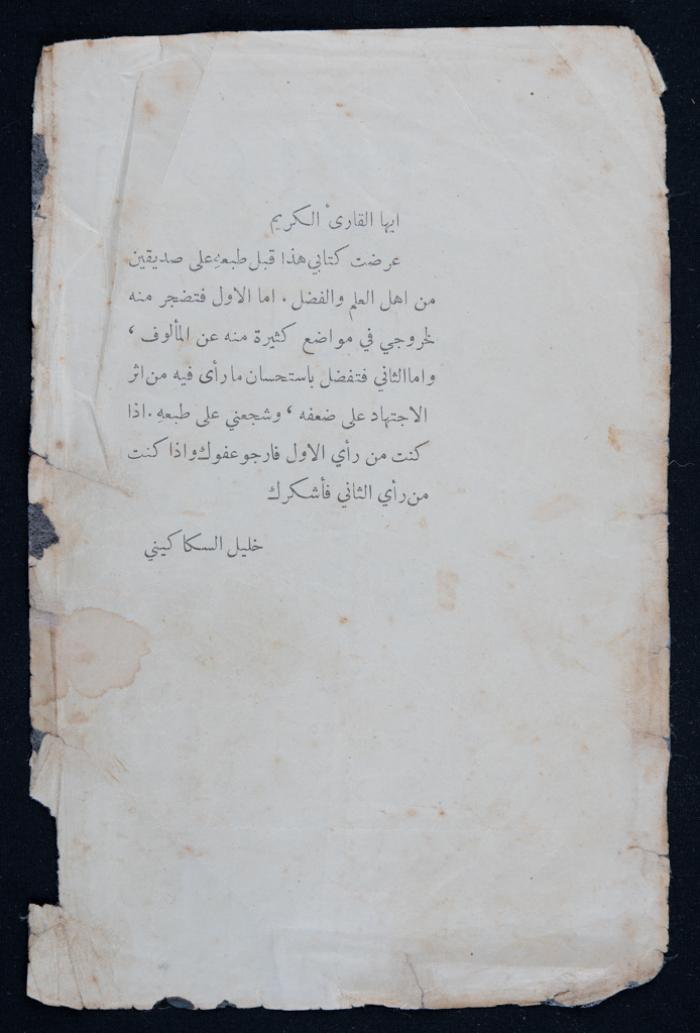 ايها القارئ الكريم
عرضت كتابي هذا قبل طبعهِ على صديقين
من اهل العلم والفضل . اما الاول فتضجر منه
لخروجي في مواضع كثيرة منه عن المألوف ،
واما الثاني فتفضل باستحسان ما رأى فيه من اثر
الاجتهاد على ضعفه ، وشجعني على طبعهِ . اذا
كنت من رأي الاول فارجو عفوك واذا كنت
من رأي الثاني فأشكرك
خليل السكاكيني